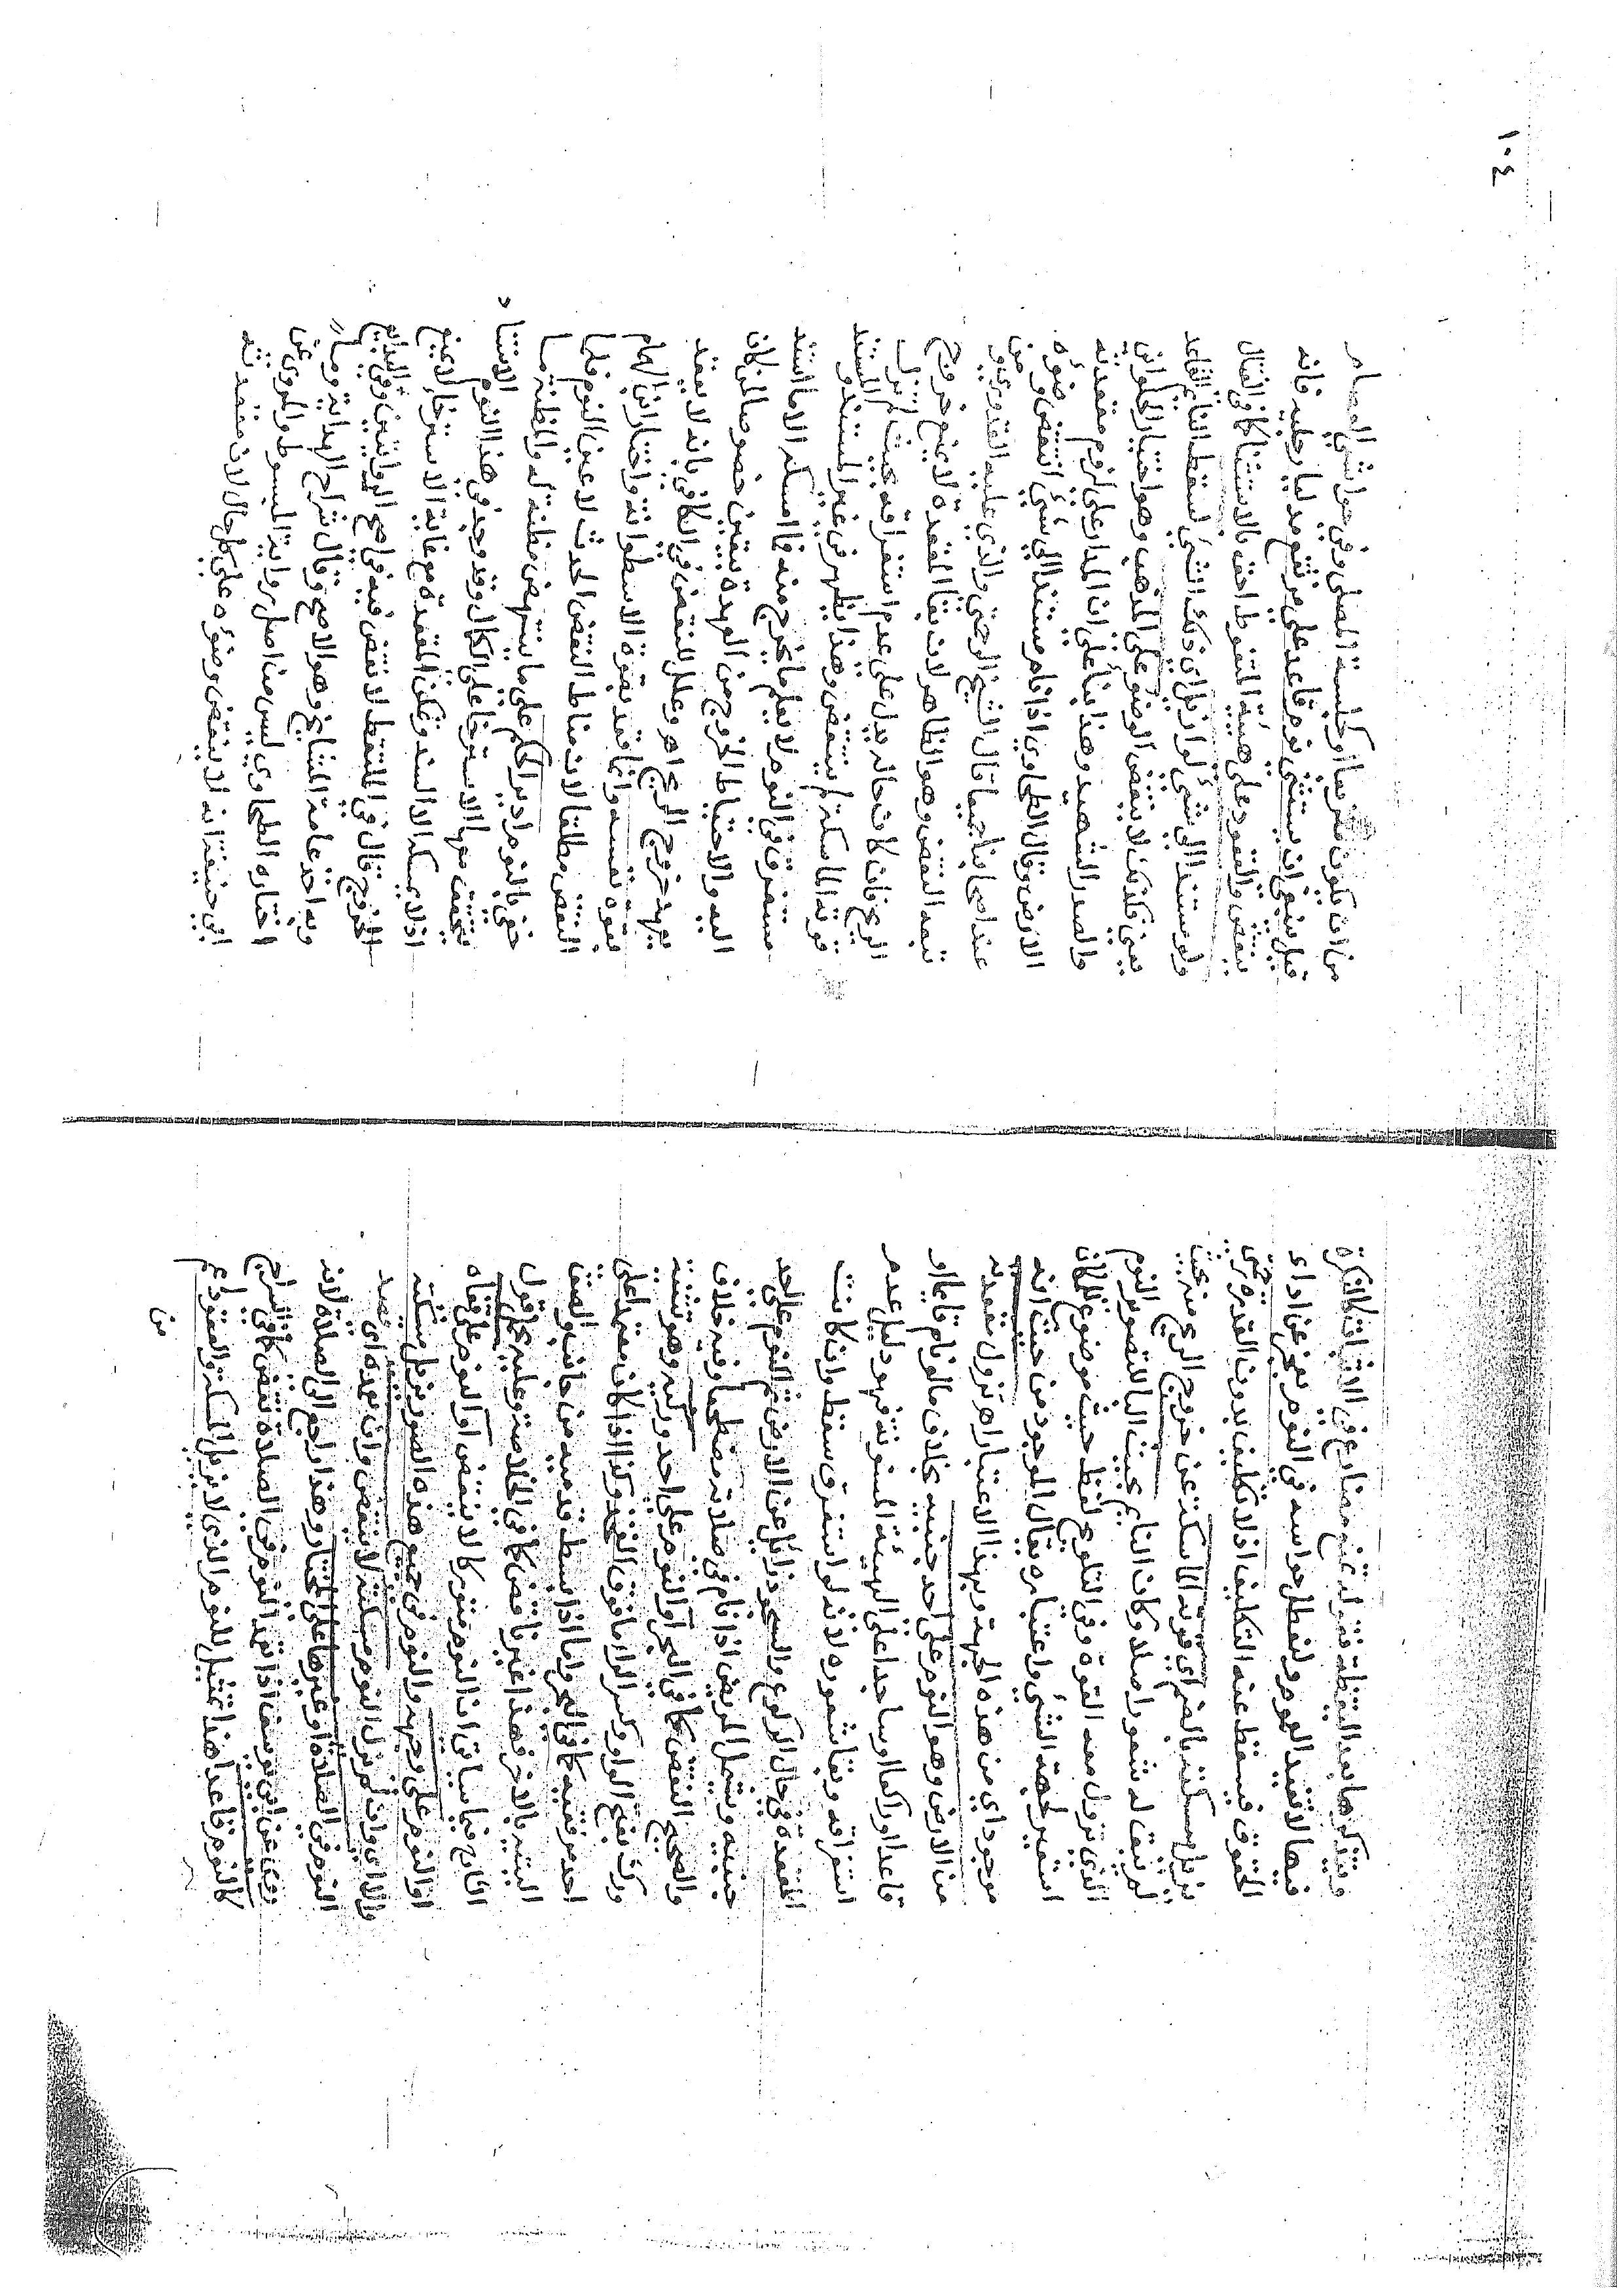 ويتذكرها بعد اليقظة فقوله تمنع مضارع في الاثبات كالنكرة
فيها لا تفيد العموم وتعطل حواسه في النوم يعجز عن اداء
الحقوق فيسقط عنه التكليف اذ لا تكليف بدون القدرة حتى
يزيل مسكته بالضم اي قوته الماسكة عن خروج الريح منه بحيث
لم يبق له شعور اصلا وكان النائم بحيث اليا للتصور النوم
الذي تزول معه القوة وفي التلويح لفظ حيث موضوع للمكان
استعير لجهة الشيء واعتباره يقال الموجود من حيث انه
موجود اي من هذه الجهة وبهذا الاعتبار اه تزول مقعدته
من الارض وهو النوم على احد جنبيه بخلاف ما لو نام قائما او
قاعدا او راكعا او ساجدا على الهيئة المسنونة فهو دليل عدم
استغراقه وبقا شعوره لانه لو استغرق سقط وان كانت
المقعدة في حال الركوع والسجود زائل عن الارض ثم النوم على احد
جنبيه ويشمل المريض اذا نام في صلاته مضطجعا وفيه خلاف
والصحيح النقض كما في البحر او النوم على احد وركيه وهو تثنية
ورك بفتح الواو وكسر الراء ما فوق الفخذ وكذا اذا كان معتمدا على
احد مرفقيه كما في البحر واما اذا بسط قدميه من جانب والصق
اليتيه بالارض فهذا غير ناقض كما في الخلاصة وعليه يحمل قول
الفاتح فيما سياتي ان النوم متوركا لا ينقض او النوم على قفاه
او النوم على وجهه والنوم في جميع هذه الصور يزيل مسكته
والا اي وان لم يزل النوم مسكته لا ينقض وان تعمده اي قصد
النوم في الصلاة او غيرها على المختار وهذا راجع الى الصلاة لانه
روي عن ابي يوسف اذا تعمد النوم في الصلاة نقض كما في شرح
كالنوم قاعدا هذا تمثيل للنوم الذي لا يزيل المسكة والمعقود اعم
من
١٠٤
من ان يكون متربعا او كجلسة المصلي وفي حواشي العصام
قيل ينبغي ان يستثنى نوم قاعد على مرتفع مدليا رجليه فانه
ينقض والقعود على هيئة السقوط احق بالاستثنا كما في القتال
ولو مستندا الى شيء لو ازيل اي ذلك الشيء لسقط النائم القاعد
يعني فلذلك لا ينقض الوضوء على المذهب وهو اختيار الحلواني
والصدر الشهيد وهذا بنا على ان المدار على لزوم مقعدته
الارض وقال الطحاوي اذا نام مستندا الى شيء انتقض وضوءه
عند اصحابنا جميعا قال الشيخ الرحمتي والذي عليه القدوري
تبعه النقض وهو الظاهر لان بقا المقعدة لا يمنع خروج
الريح فان كان حاله يدل على عدم استغراقه بحيث لم تزل
قوته الماسكة لم ينتقض وهذا يظهر في غير المستند والمستند
مستغرق في النوم لا يعلم ما يخرج منه فلا مسكة له الا ما استند
اليه والاحتياط الخروج من العهدة بيقين خصوصا لمن كان
يعهد خروج الريح اهـ وعلل للنقض في الكافي بانه لا يعتد
بقوة نفسه وانما قعد بقوة الاسطوانة واختار ابن الهمام
النقض مطلقا لان مناط النقض الحدث لا عين النوم فلما
خفي بالنوم ادير الحكم على ما ينتهض مظنة له والمظنة ما
يتحقق معها الاسترخاء على الكمال وقد وجد في هذا النوم
اذ لا يمسكه الا السند وتمكن المقعدة مع غاية الاسترخاء لا يمنع
الخروج قال في الملتقط لا تنقض فيه في اصح الروايتين وفي البدائع
وبه اخذ عامة المشايخ وهو الاصح وقال شراح الهداية وما
اختاره الطحاوي ليس من اصل رواية المبسوط والمروي عن
ابي حنيفة انه لا ينقض وضوءه على كل حال لان مقعدته